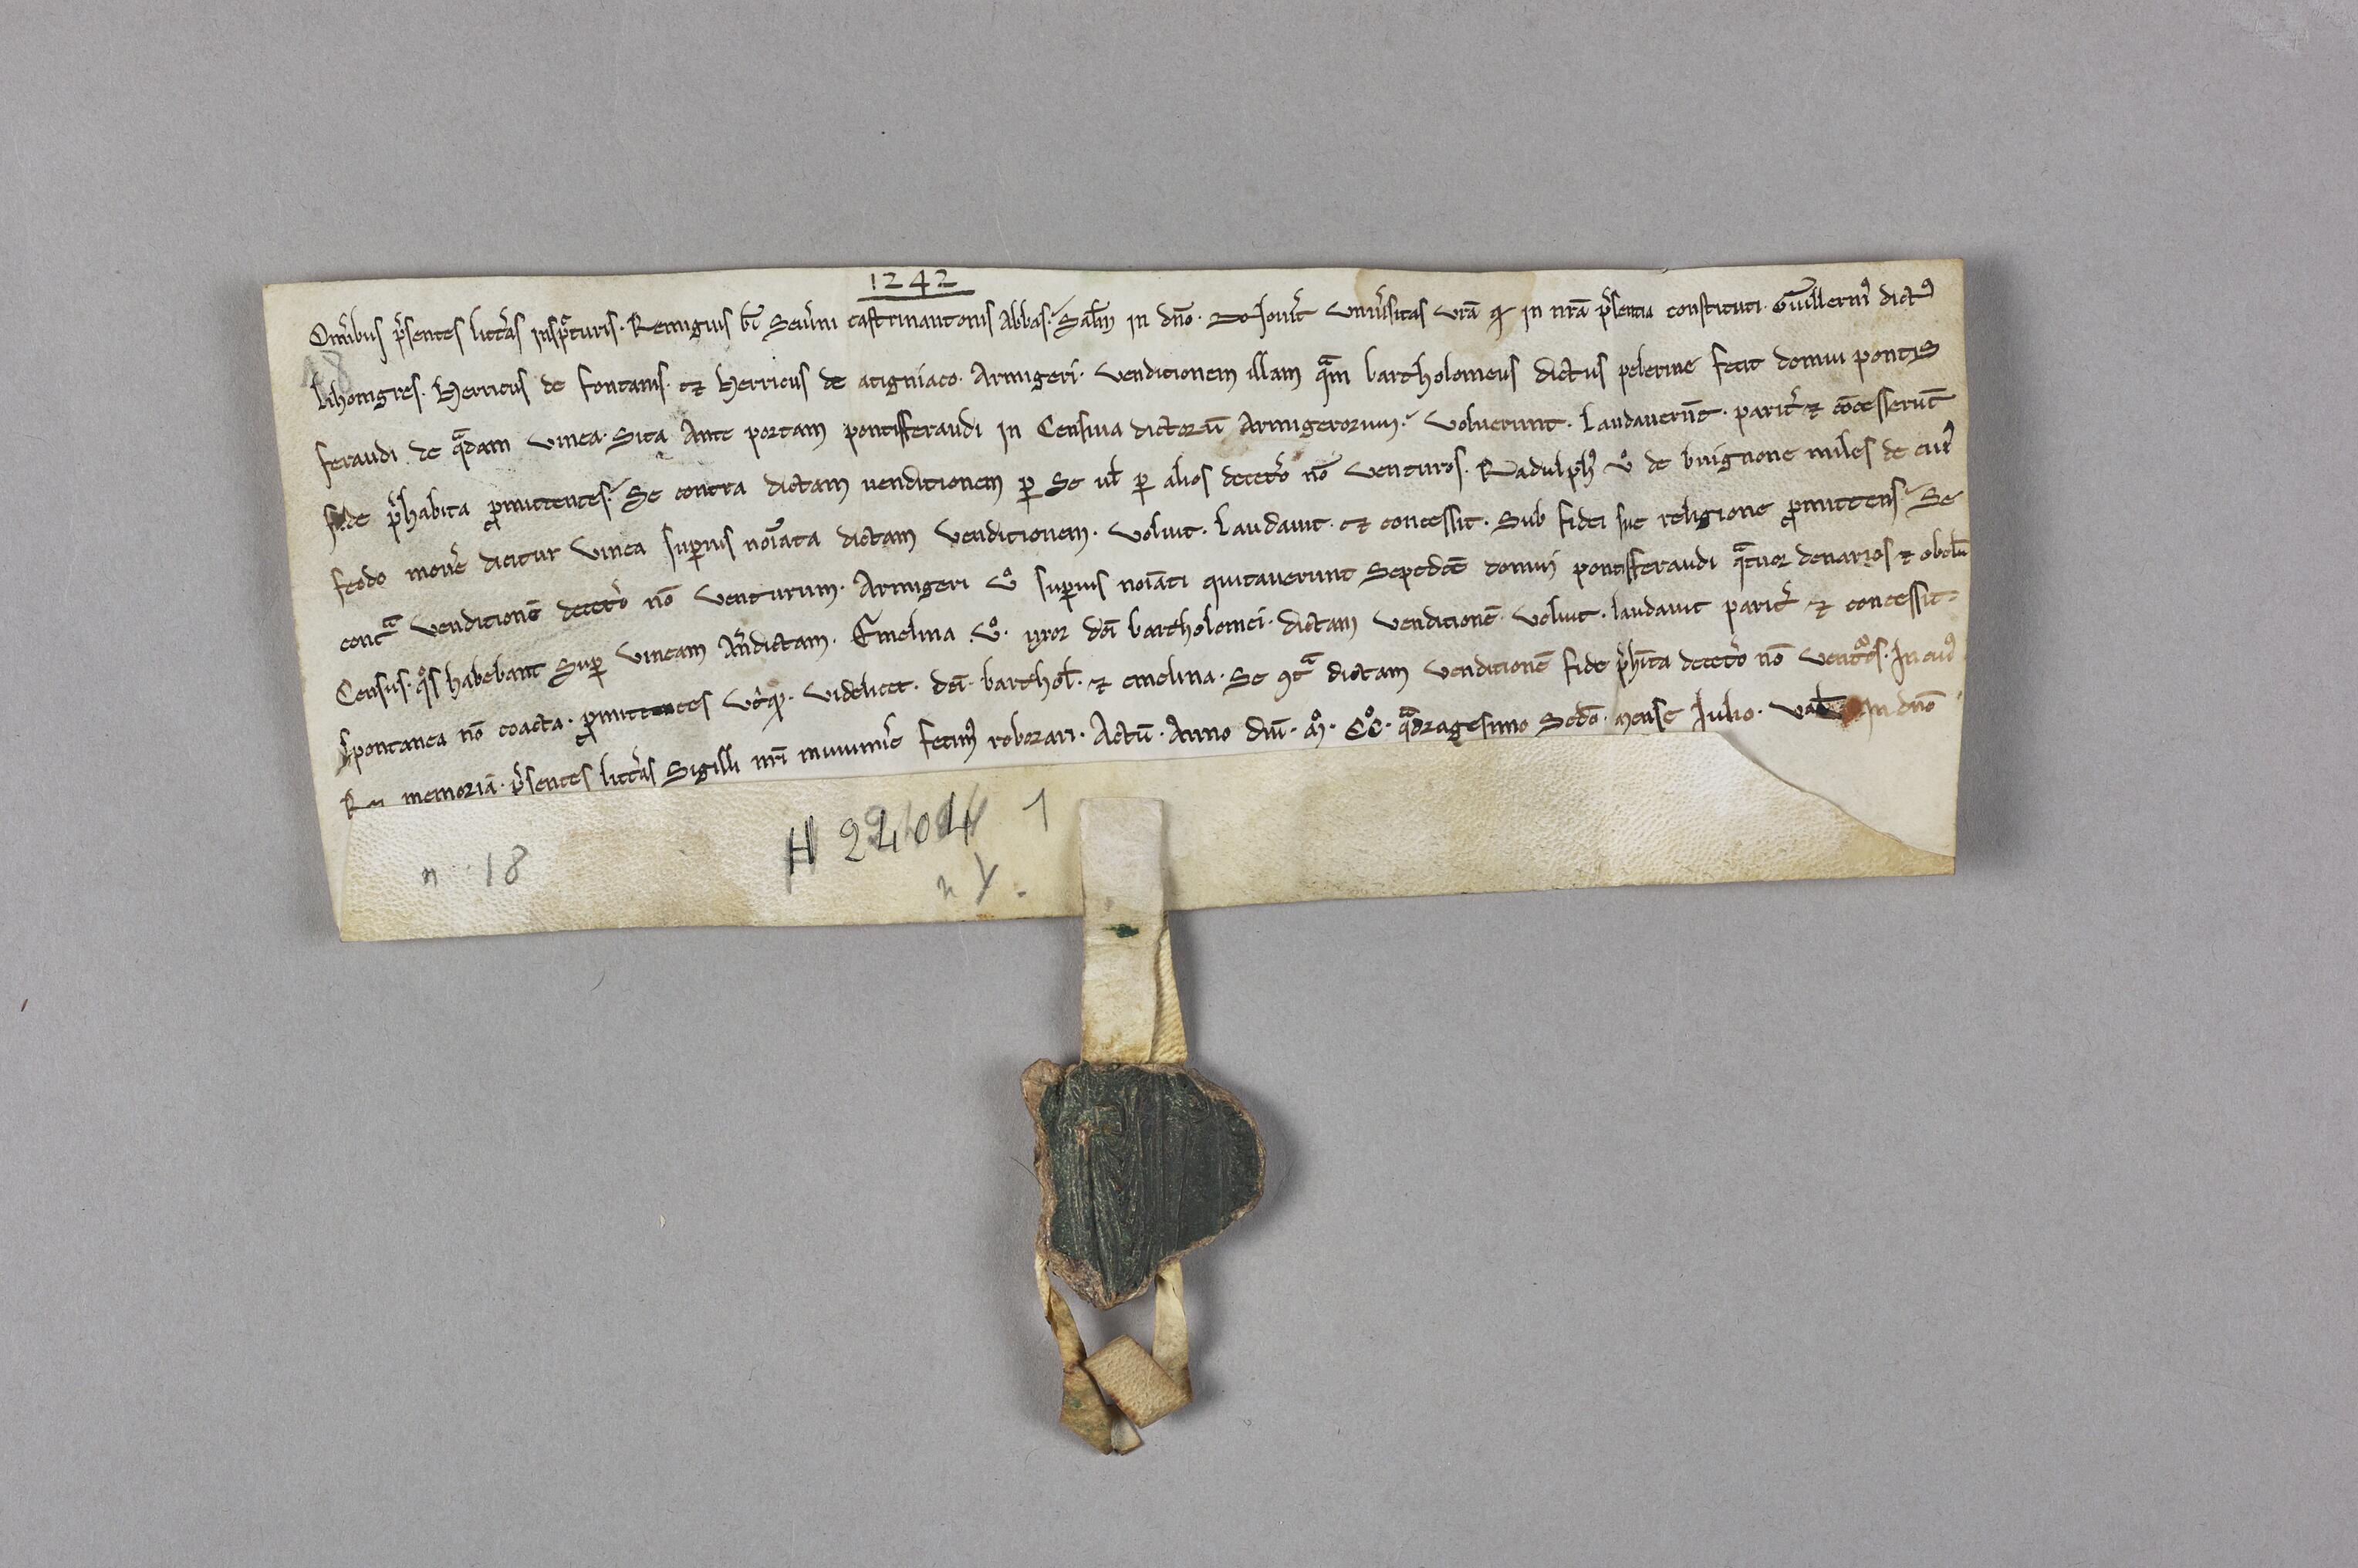 1242
Om̅ibus p̾sentes litt̾as inspᵃturis. Remigius bt̅i Seu̾ini castrinantonis Abbas. Sal̅m in dn̅o. Nou̾it uniu̾sitas ur̅a q̱ in nr̅a p̾sentia constituti. Guillermꝰ dictꝰ
lihongres. Herricus de fontanis. et Herricus de atigniaco. Armigeri. venditionem illam qᵃm bartholomeus dictus pelerine fecit domui pontis
feraudi. de qᵃdam vinea. Sita Ante portam pontisferaudi in Censiua dictoru̅ Armigerorum. voluerunt. Laudaueru̅t. parit̾ ⁊ co̅cesserunt
fide p̾habita ꝓmittentes. Se contra dictam uenditionem ꝑ Se ul̅ ꝑ alios decet̾o no̅ venturos. Radulphꝰ u̾o de buignone miles de cuiꝰ
feodo mou̾e dicitur vinea superius no̅iata dictam venditionem. voluit. laudauit. et concessit. Sub fidei sue religione ꝓmittens Se
contᵃ venditione̅ decet̾o no̅ venturum. Armigeri u̾o superius no̅iati quitauerunt Sepedc̅e domui pontisferaudi qᵃtuor denarios ⁊ obolu̅
Census. qᵒs habebant Suꝑ vineam An̾dictam. Emelina u̾o. uxor dc̅i bartholomei. dictam venditione̅. voluit. laudauit parit̾ ⁊ concessit.
Spontanea no̅ coacta. ꝓmittentes ut̾q. videlicet. dc̅i. barthol̅. ⁊ emelina. Se ꝯtᵃ dictam venditione̅ fide p̾hi̅ta decet̾o no̅ ventᵒs. In cuiꝰ
Rei memoria̅. p̾sentes litt̾as Sigilli nr̅i munimi̅e fecimꝰ roborari. Actu̅. Anno dn̅i. Mᵒ. CCᵒ. qᵃdragesimo Scd̅o. mense Iulio. Val̅ In dn̅o
18
n 18
H 2404 1
n Y.